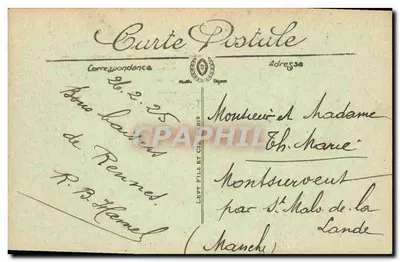 Carte Postale
Correspondance
Adresse
26.2.25
Bons baisers
de Rennes.
R. B. Hamel
LEVY FILS ET CIE, PARIS
Monsieur et Madame
Th. Marie
Montsurvent
par St Malo de la
Lande
(Manche)
CPAPHIL.COM